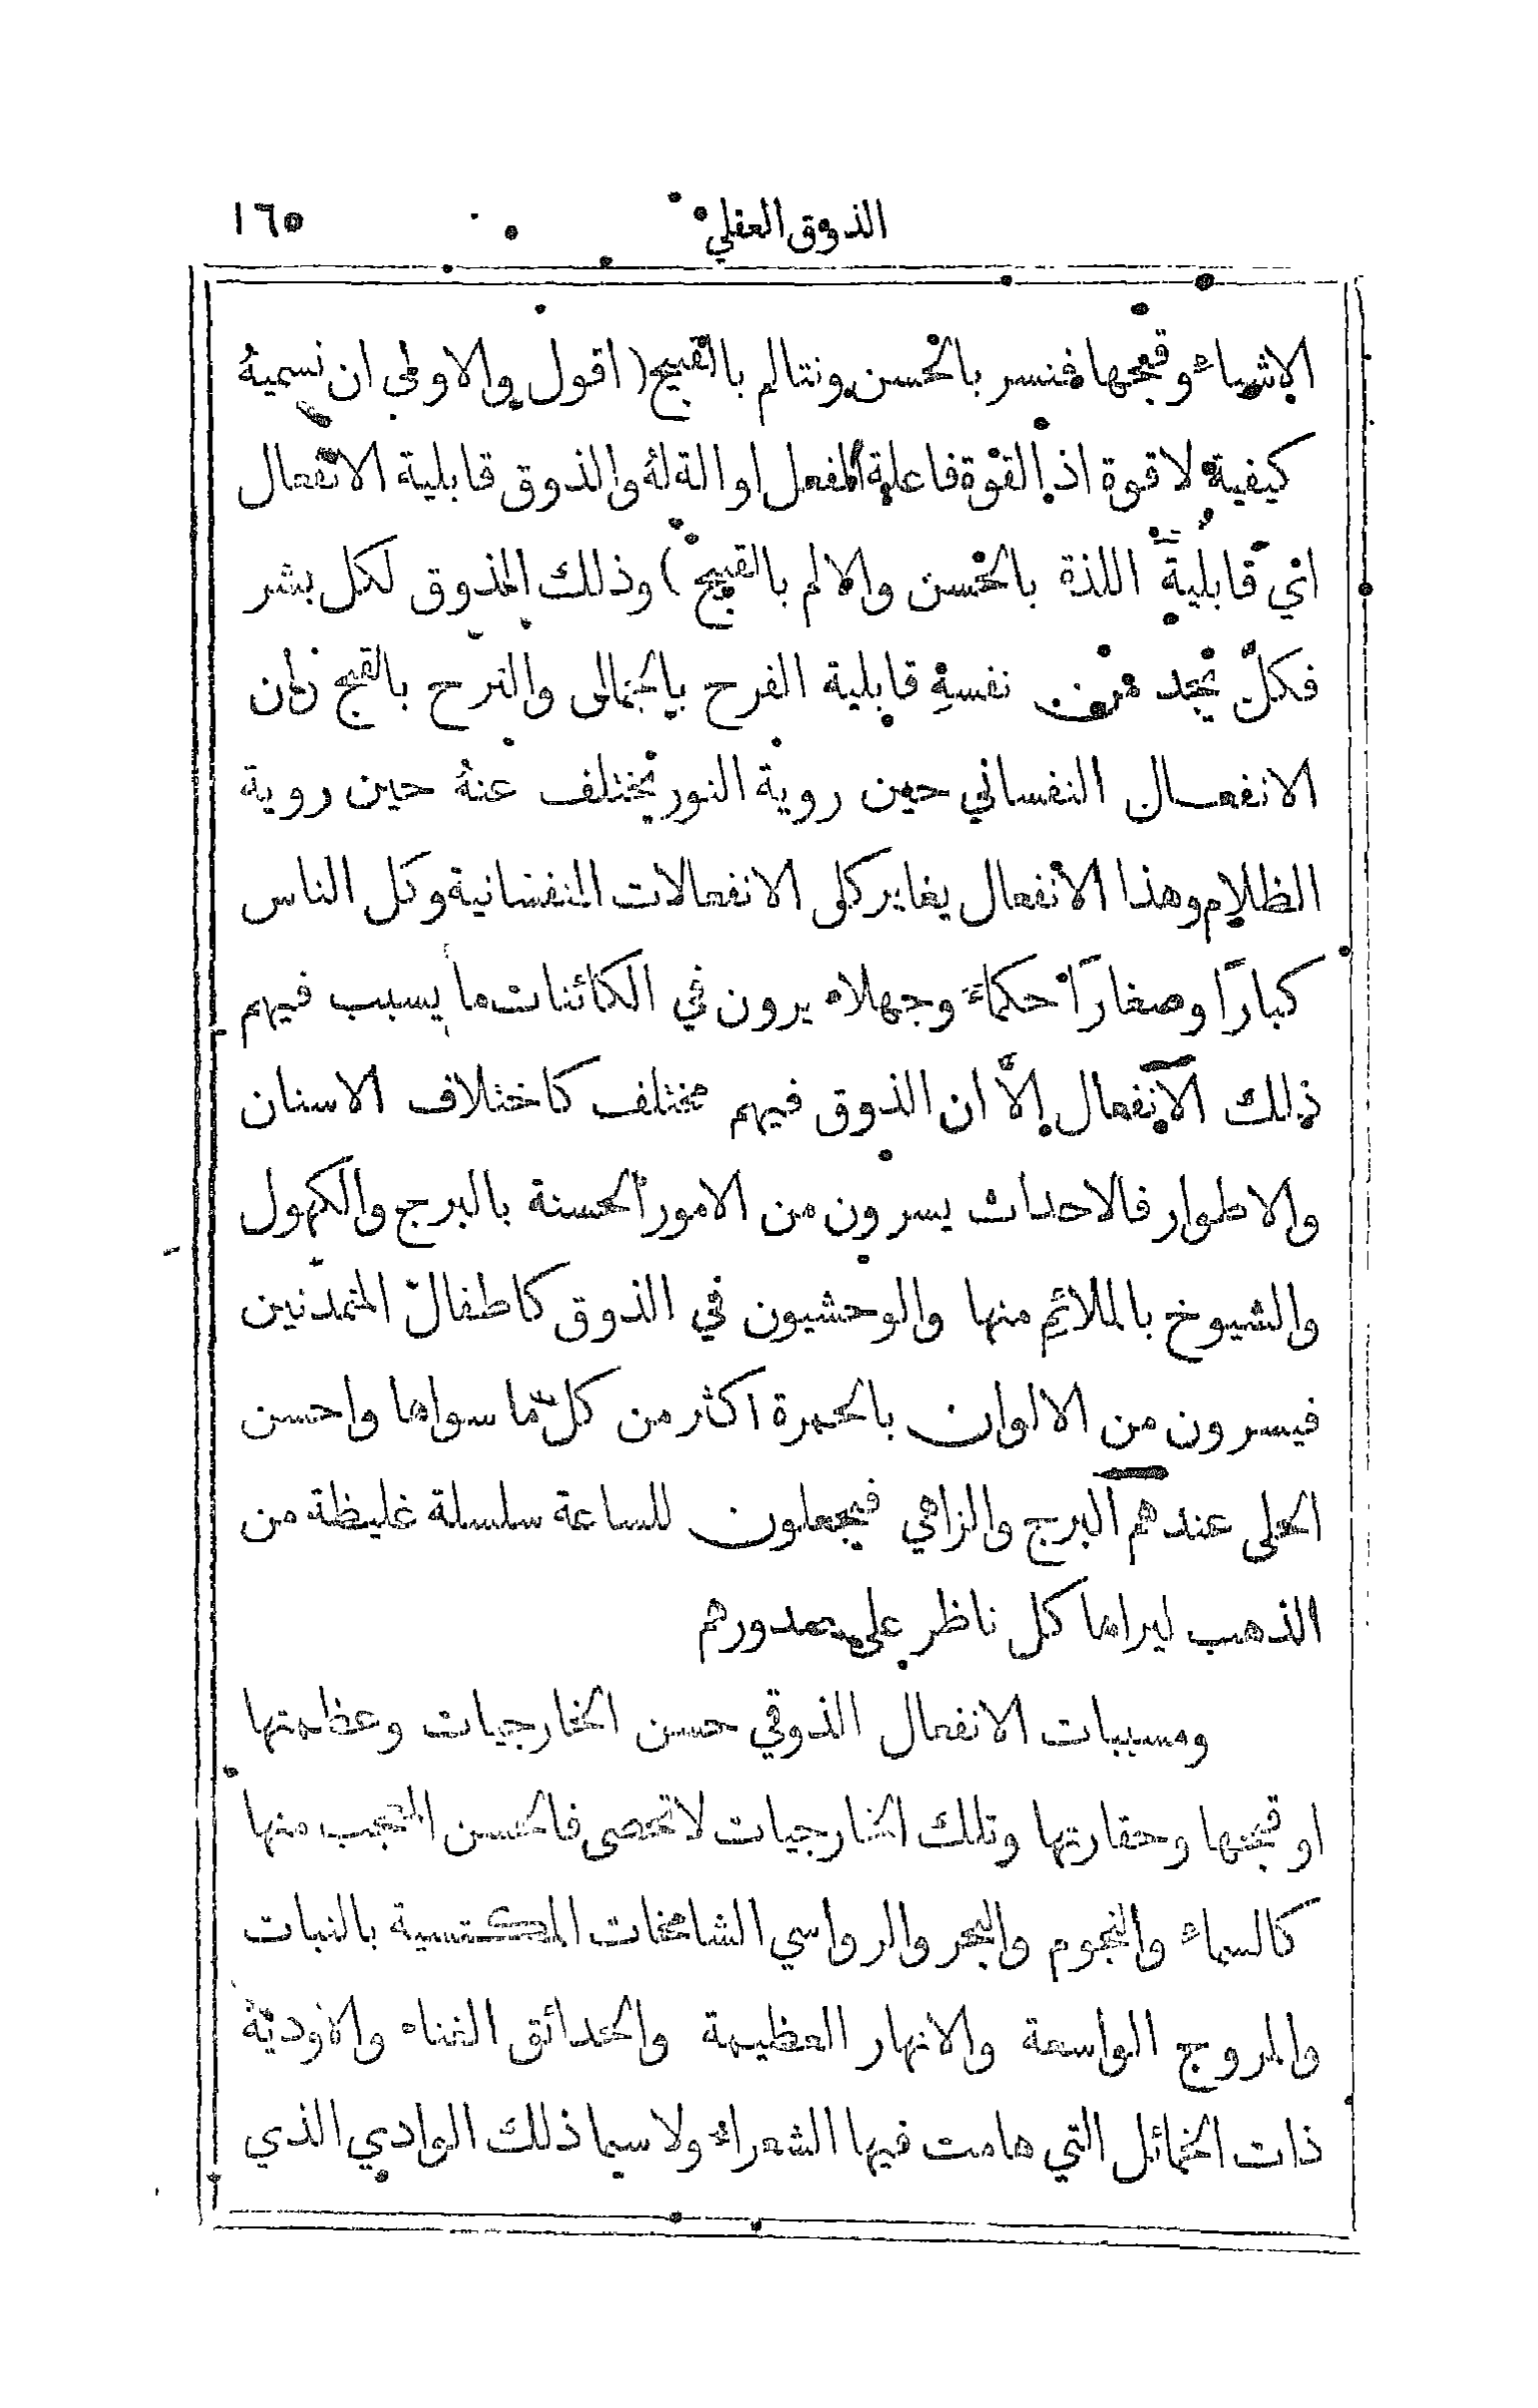 الذوق العقلي ١٦٥
الاشياء وقبحها فنسر بالحسن ونتالم بالقبيح (اقول والاولى ان نسميهُ
كيفية لا قوة اذ القوة فاعلية المفعل او الة لهُ والذوق قابلية الانفعال
اي قابليةُ اللذة بالحسن والالم بالقبيح) وذلك الذوق لكل بشر
فكلٌّ يجد من نفسهِ قابلية الفرح بالجمال والترح بالقبح وان
الانفعال النفساني حين روية النور يختلف عنهُ حين روية
الظلام وهذا الانفعال يغاير كل الانفعالات النفسانية وكل الناس
كبارًا وصغارًا حكماءَ وجهلاء يرون في الكائنات ما يسبب فيهم
ذلك الانفعال الَّا ان الذوق فيهم مختلف كاختلاف الاسنان
والاطوار فالاحداث يسرون من الامور الحسنة بالبرج والكهول
والشيوخ بالملائم منها والوحشيون في الذوق كاطفال المتمدنين
فيسرون من الالوان بالحمرة اكثر من كلّ ما سواها واحسن
الحلي عندهم البرج والزاهي فيجعلون للساعة سلسلة غليظة من
الذهب ليراها كل ناظر على صدورهم
ومسببات الانفعال الذوقي حسن الخارجيات وعظمتها
او قبحها وحقارتها وتلك الخارجيات لا تحصى فالحسن المتعجب منها
كالسماء والنجوم والبحر والرواسي الشامخات المكتسية بالنبات
والمروج الواسعة والانهار العظيمة والحدائق الغناء والاودية
ذات الخمائل التي هامت فيها الشعراء ولا سيما ذلك الوادي الذي